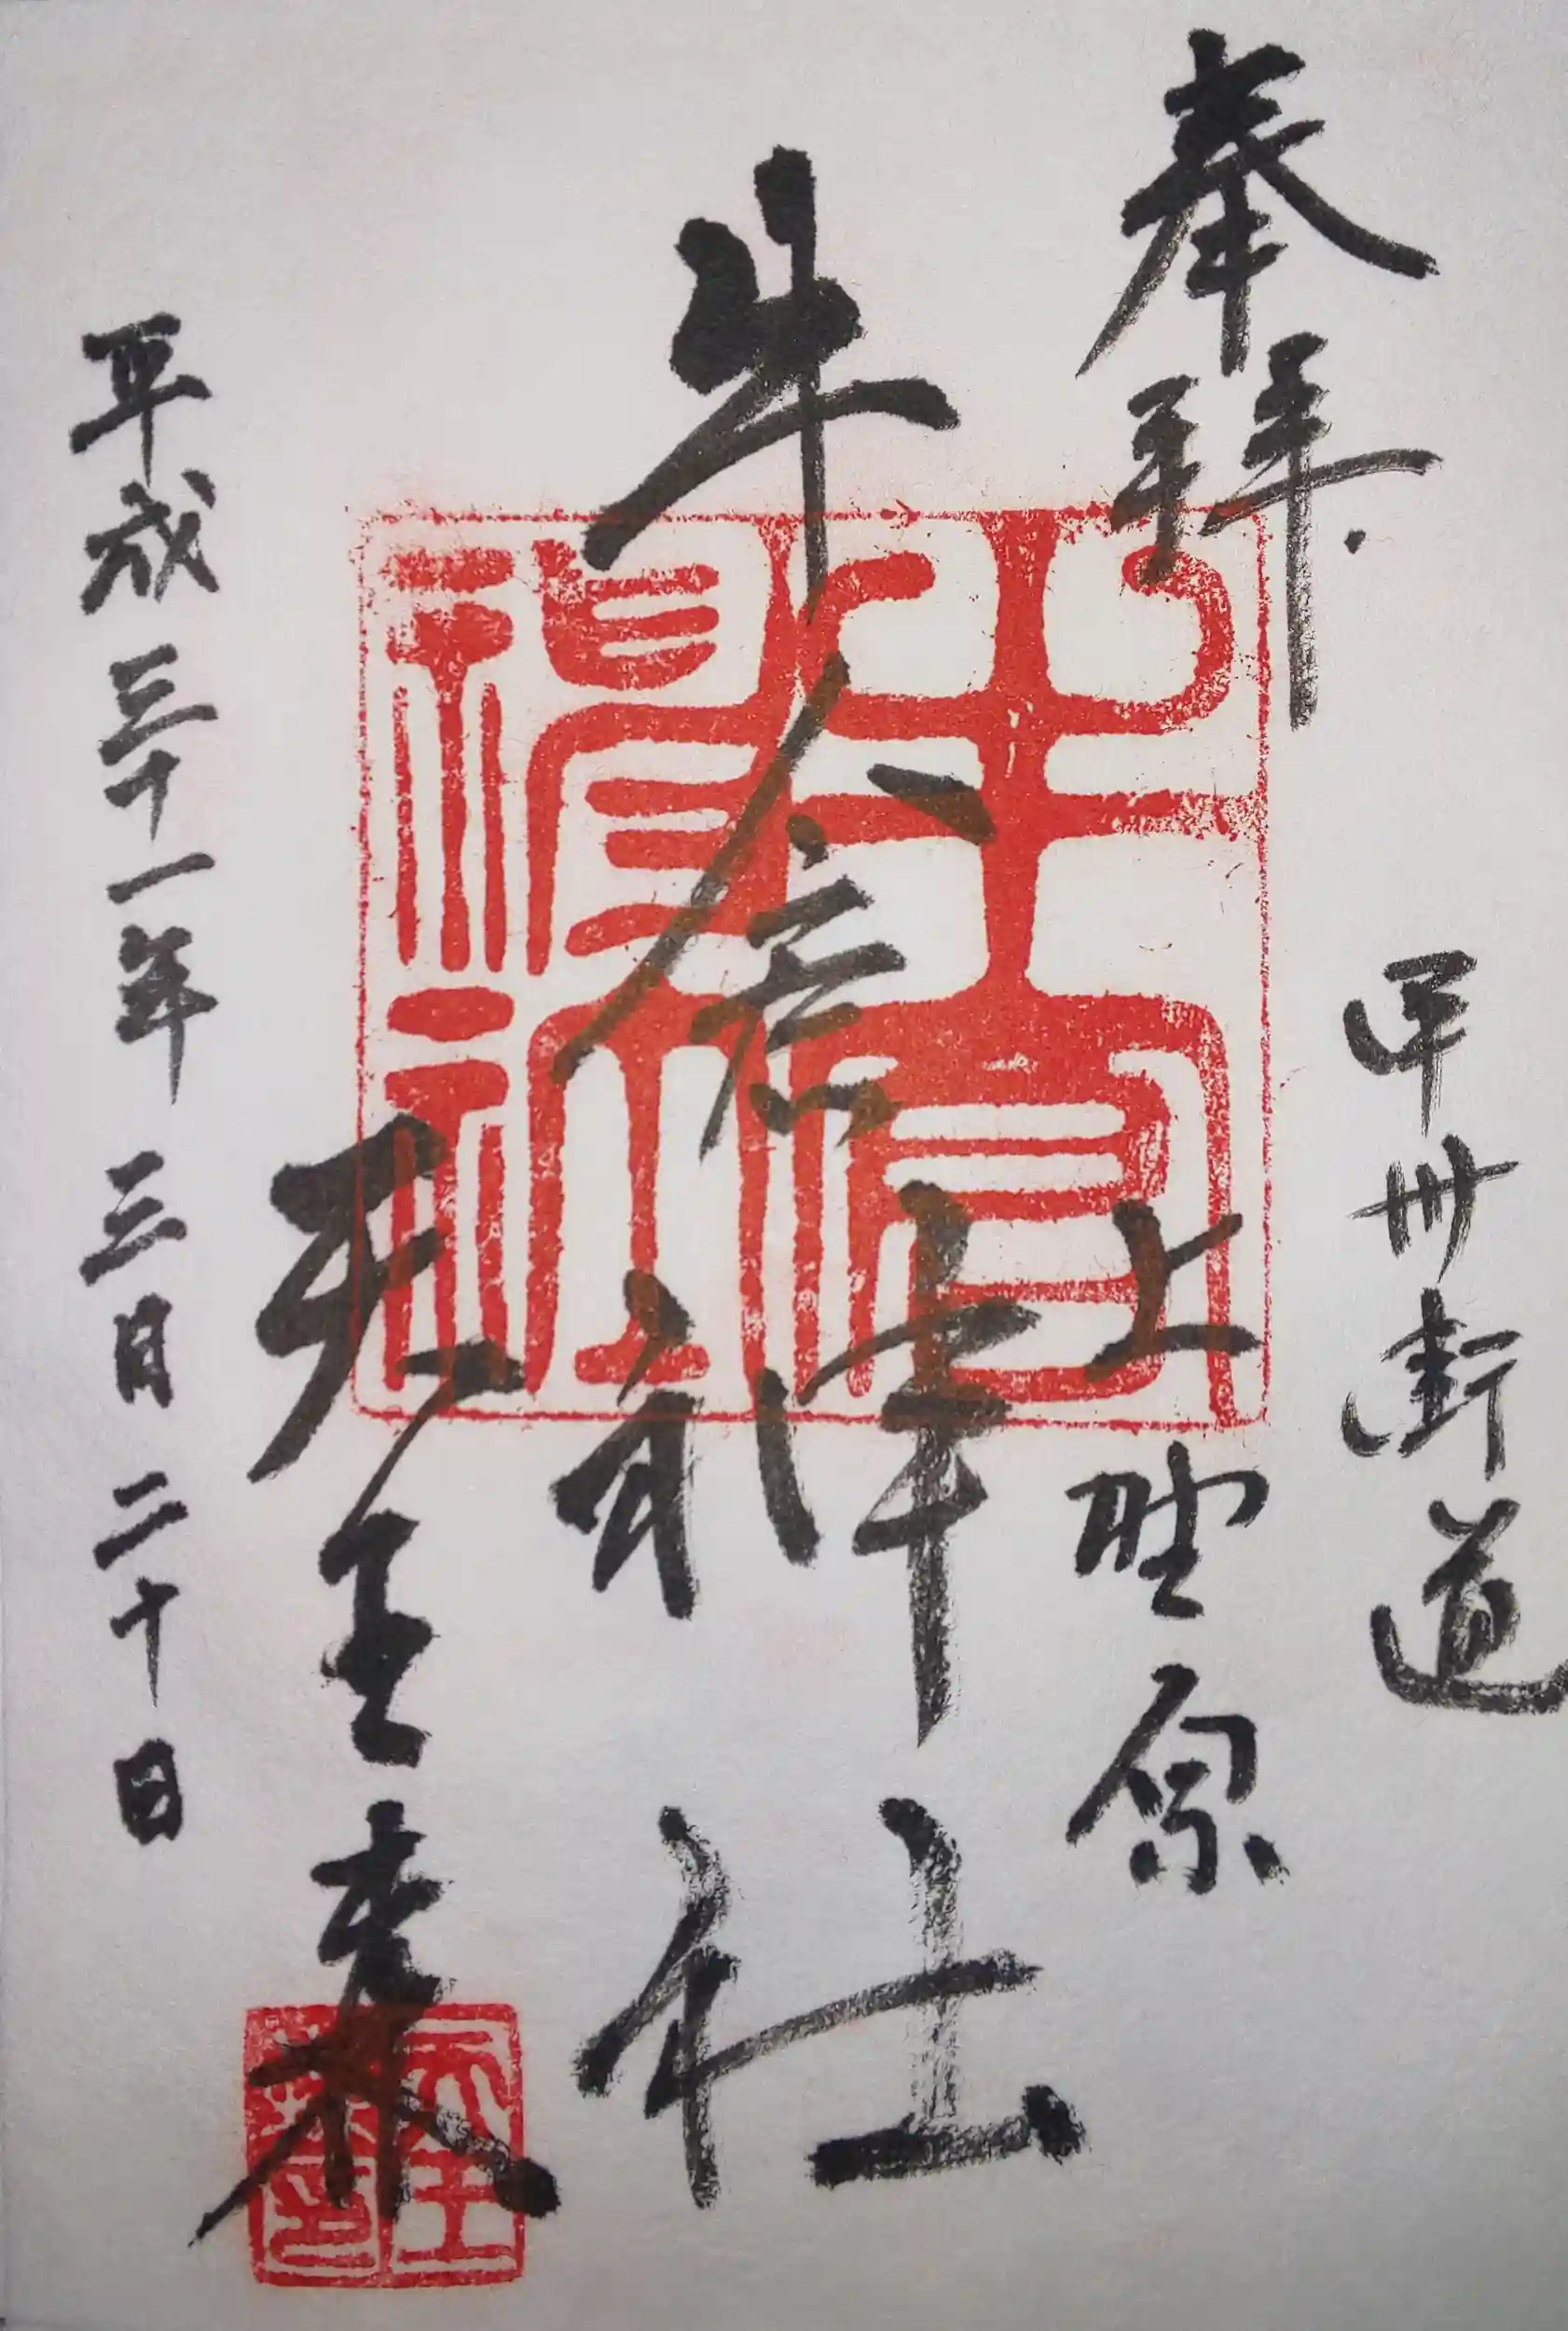 奉拝
甲州街道
上野原
牛倉神社
天王祭
平成三十一年三月二十日
牛倉神社